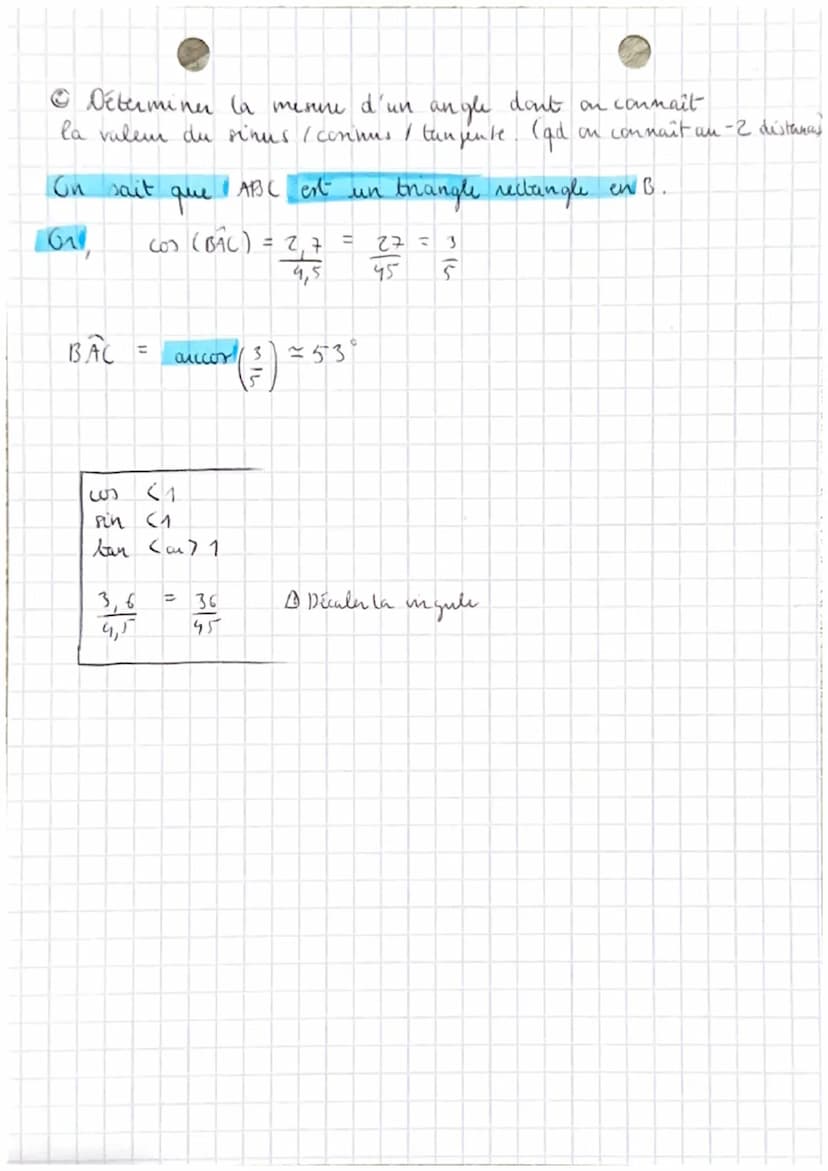 © Déterminer la mesure d'un angle dont on connaît
la valeur du sinus / cosinus / tangente. (qd on connaît au -2 distances)
On sait que ABC est un triangle rectangle en B.
Or, cos (BÂC) = 2,7/4,5 = 27/45 = 3/5
BÂC = arccos (3/5) ≃ 53°
cos < 1
sin < 1
tan < ou > 1
3,6/4,5 = 36/45 ⚠ Décaler la virgule